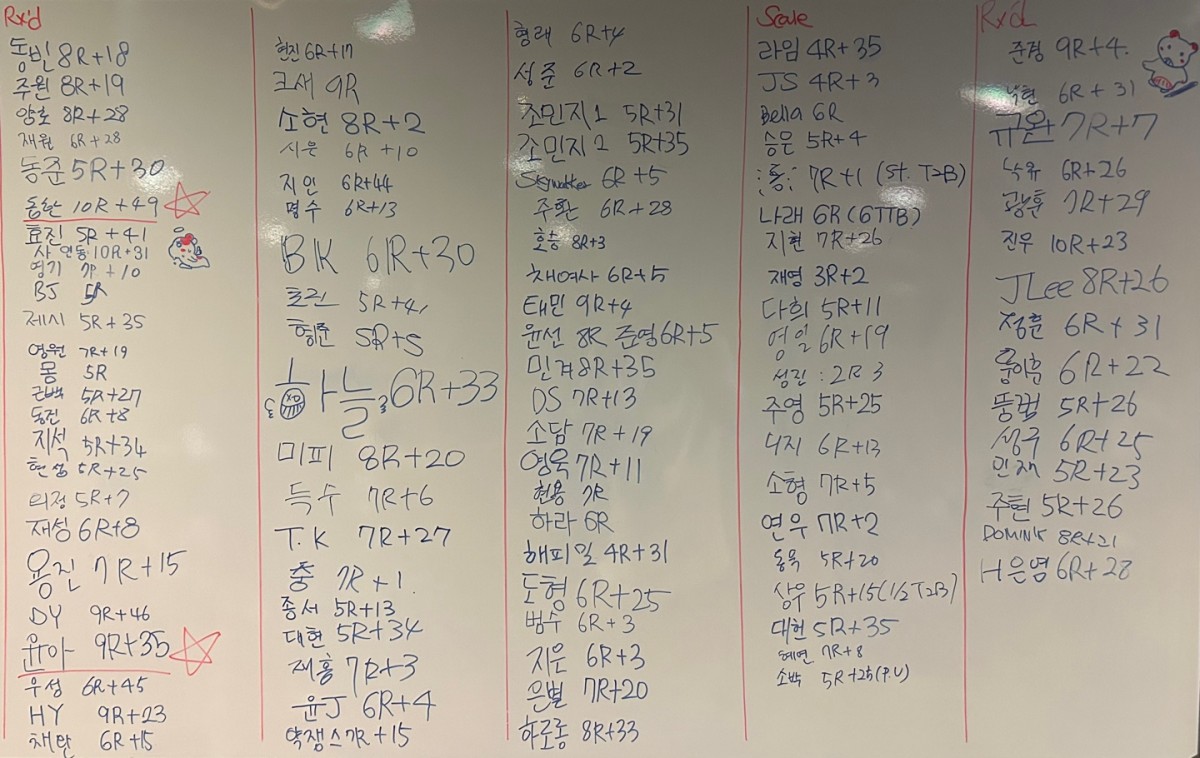 Rx'd
동빈 8R+18
주원 8R+19
양호 8R+28
재원 6R+28
동준 5R+30
동란 10R+49
효진 5R+41
사 연동 10R+31
영기 7R+10
BJ 5R
제시 5R+35
영원 7R+19
몽 5R
근백 5R+27
동진 6R+8
지석 5R+34
현섭 5R+25
의정 5R+7
재성 6R+8
용진 7R+15
DY 9R+46
윤아 9R+35
우성 6R+45
HY 9R+23
채란 6R+15
현진 6R+17
크새 9R
소현 8R+2
시은 6R+10
지인 6R+44
명수 6R+13
BK 6R+30
호린 5R+4
형준 5R+5
하늘 6R+33
미피 8R+20
득수 7R+6
T.K 7R+27
충 7R+1
종서 5R+13
대현 5R+34
재홍 7R+3
윤J 6R+4
약쟁스 7R+15
형래 6R+4
성준 6R+2
조민지1 5R+31
조민지2 5R+35
Skywalker 6R+5
주환 6R+28
호승 8R+3
채여사 6R+5
태민 9R+4
윤선 8R 준영 6R+5
민겸 8R+35
DS 7R+13
소담 7R+19
영욱 7R+11
현용 7R
하라 6R
해피일 4R+31
도형 6R+25
범수 6R+3
지은 6R+3
은별 7R+20
하로롱 8R+33
Scale
라임 4R+35
JS 4R+3
Bella 6R
승은 5R+4
:통: 7R+1 (St. T2B)
나래 6R (6TTB)
지현 7R+26
재영 3R+2
다희 5R+11
영일 6R+19
성진 : 2R 3
주영 5R+25
너지 6R+13
소형 7R+5
연우 7R+2
동욱 5R+20
상우 5R+15 (1/2 T2B)
대헌 5R+35
혜연 7R+8
소백 5R+25 (P.U)
Rx'd
준경 9R+4.
6R+31
규완 7R+7
낙유 6R+26
광훈 7R+29
진우 10R+23
JLee 8R+26
정훈 6R+31
6R+22
뚱컵 5R+26
성구 6R+25
민재 5R+23
주현 5R+26
DOMINIK 8R+21
H은엽 6R+28